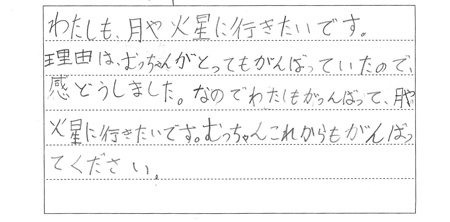 わたしも、月や火星に行きたいです。
理由は、むっちゃんがとってもがんばっていたので、
感どうしました。なのでわたしもがっんばって、月や
火星に行きたいです。むっちゃんこれからもがんばっ
てください。